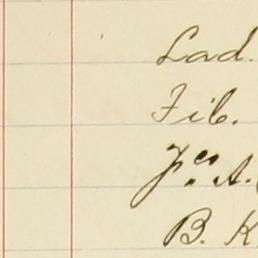 Lad.
Fib.
Jcs. A.
B. K